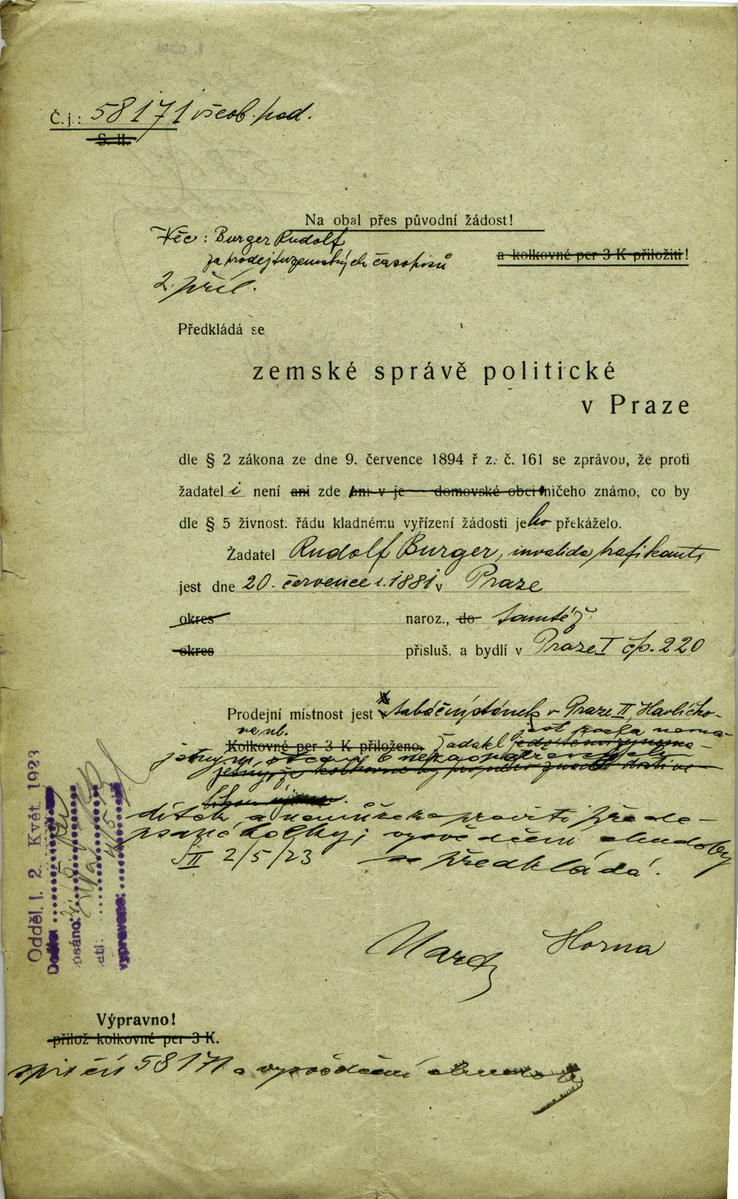 Č.j.: 58171 všeob. pod.
S. II.
Na obal přes původní žádost!
Věc: Burger Rudolf
za prodej tuzemských časopisů
a kolkovné per 3 K přiložiti!
2 příl.
Předkládá se
zemské správě politické
v Praze
dle § 2 zákona ze dne 9. července 1894 ř z. č. 161 se zprávou, že proti
žadateli není ani zde ani v je domovské obci ničeho známo, co by
dle § 5 živnost. řádu kladnému vyřízení žádosti jeho překáželo.
Žadatel Rudolf Burger, invalida, trafikant
jest dne 20. července r. 1881 v Praze
okres naroz., do tamtéž
okres přísluš. a bydlí v Praze I čp. 220
Prodejní místnost jest tabáční stánek v Praze II, Havlíčko-
vě ul.
Kolkovné per 3 K přiloženo. Žadatel jest
jetným, otcem 6
dítek a nemůže zapraviti přede-
psané kolky; vysvědčení chudoby
II 2/5/23 se předkládá.
Horna
Odděl. I. 2. Květ. 1923
Došlo:
psáno:
vypraveno:
Výpravno!
přilož kolkovné per 3 K.
spis čís 58171 a vysvědčení chudoby